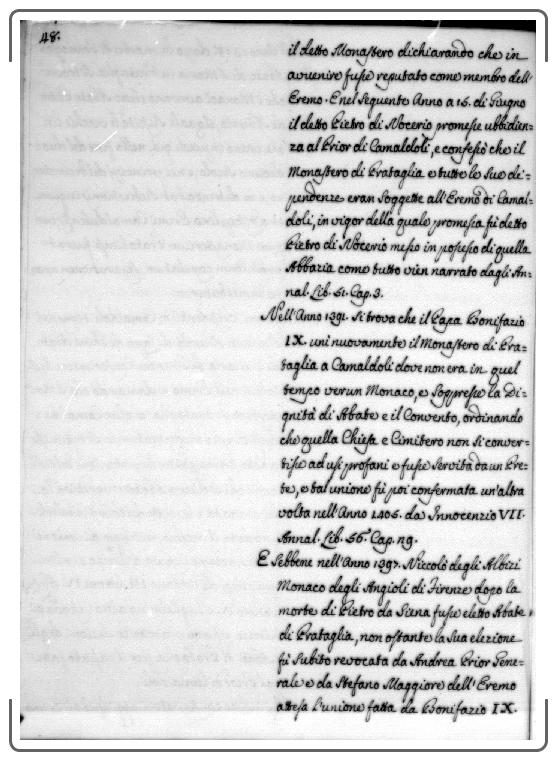 48.
il detto Monastero dichiarando che in
avvenire fusse reputato come membro dell'
Eremo. E nel seguente Anno a 16. di Giugno
il detto Pietro di Nocerio promesse ubbidien=
za al Prior di Camaldoli, e confessò che il
Monastero di Prataglia e tutte le sue di=
pendenze eran soggette all'Eremo di Camal=
doli, in vigor della quale promessa fù detto
Pietro di Nocerio messo in possesso di quella
Abbazia come tutto vien narrato dagli An=
nal. Lib. 51. Cap. 3.
Nell'Anno 1391. si trova che il Papa Bonifazio
IX. unì nuovamente il Monastero di Pra=
taglia a Camaldoli dove non era in quel
tempo verun Monaco, e soppresse la Di=
gnità di Abate e il Convento, ordinando
che quella Chiesa e Cimitero non si conver=
tisse ad usi profani e fusse servita da un Pre=
te, e tal unione fù poi confermata un'altra
volta nell'Anno 1405. da Innocenzio VII.
Annal. Lib. 56. Cap.
E sebbene nell'anno 1397. Niccolò degli Albizi
Monaco degli Angioli di Firenze dopo la
morte di Pietro da Siena fusse eletto Abate
di Prataglia, non ostante la sua elezione
fù subito revocata da Andrea Prior Gene=
rale e da Stefano Maggiore dell'Eremo
attesa l'unione fatta da Bonifazio IX.